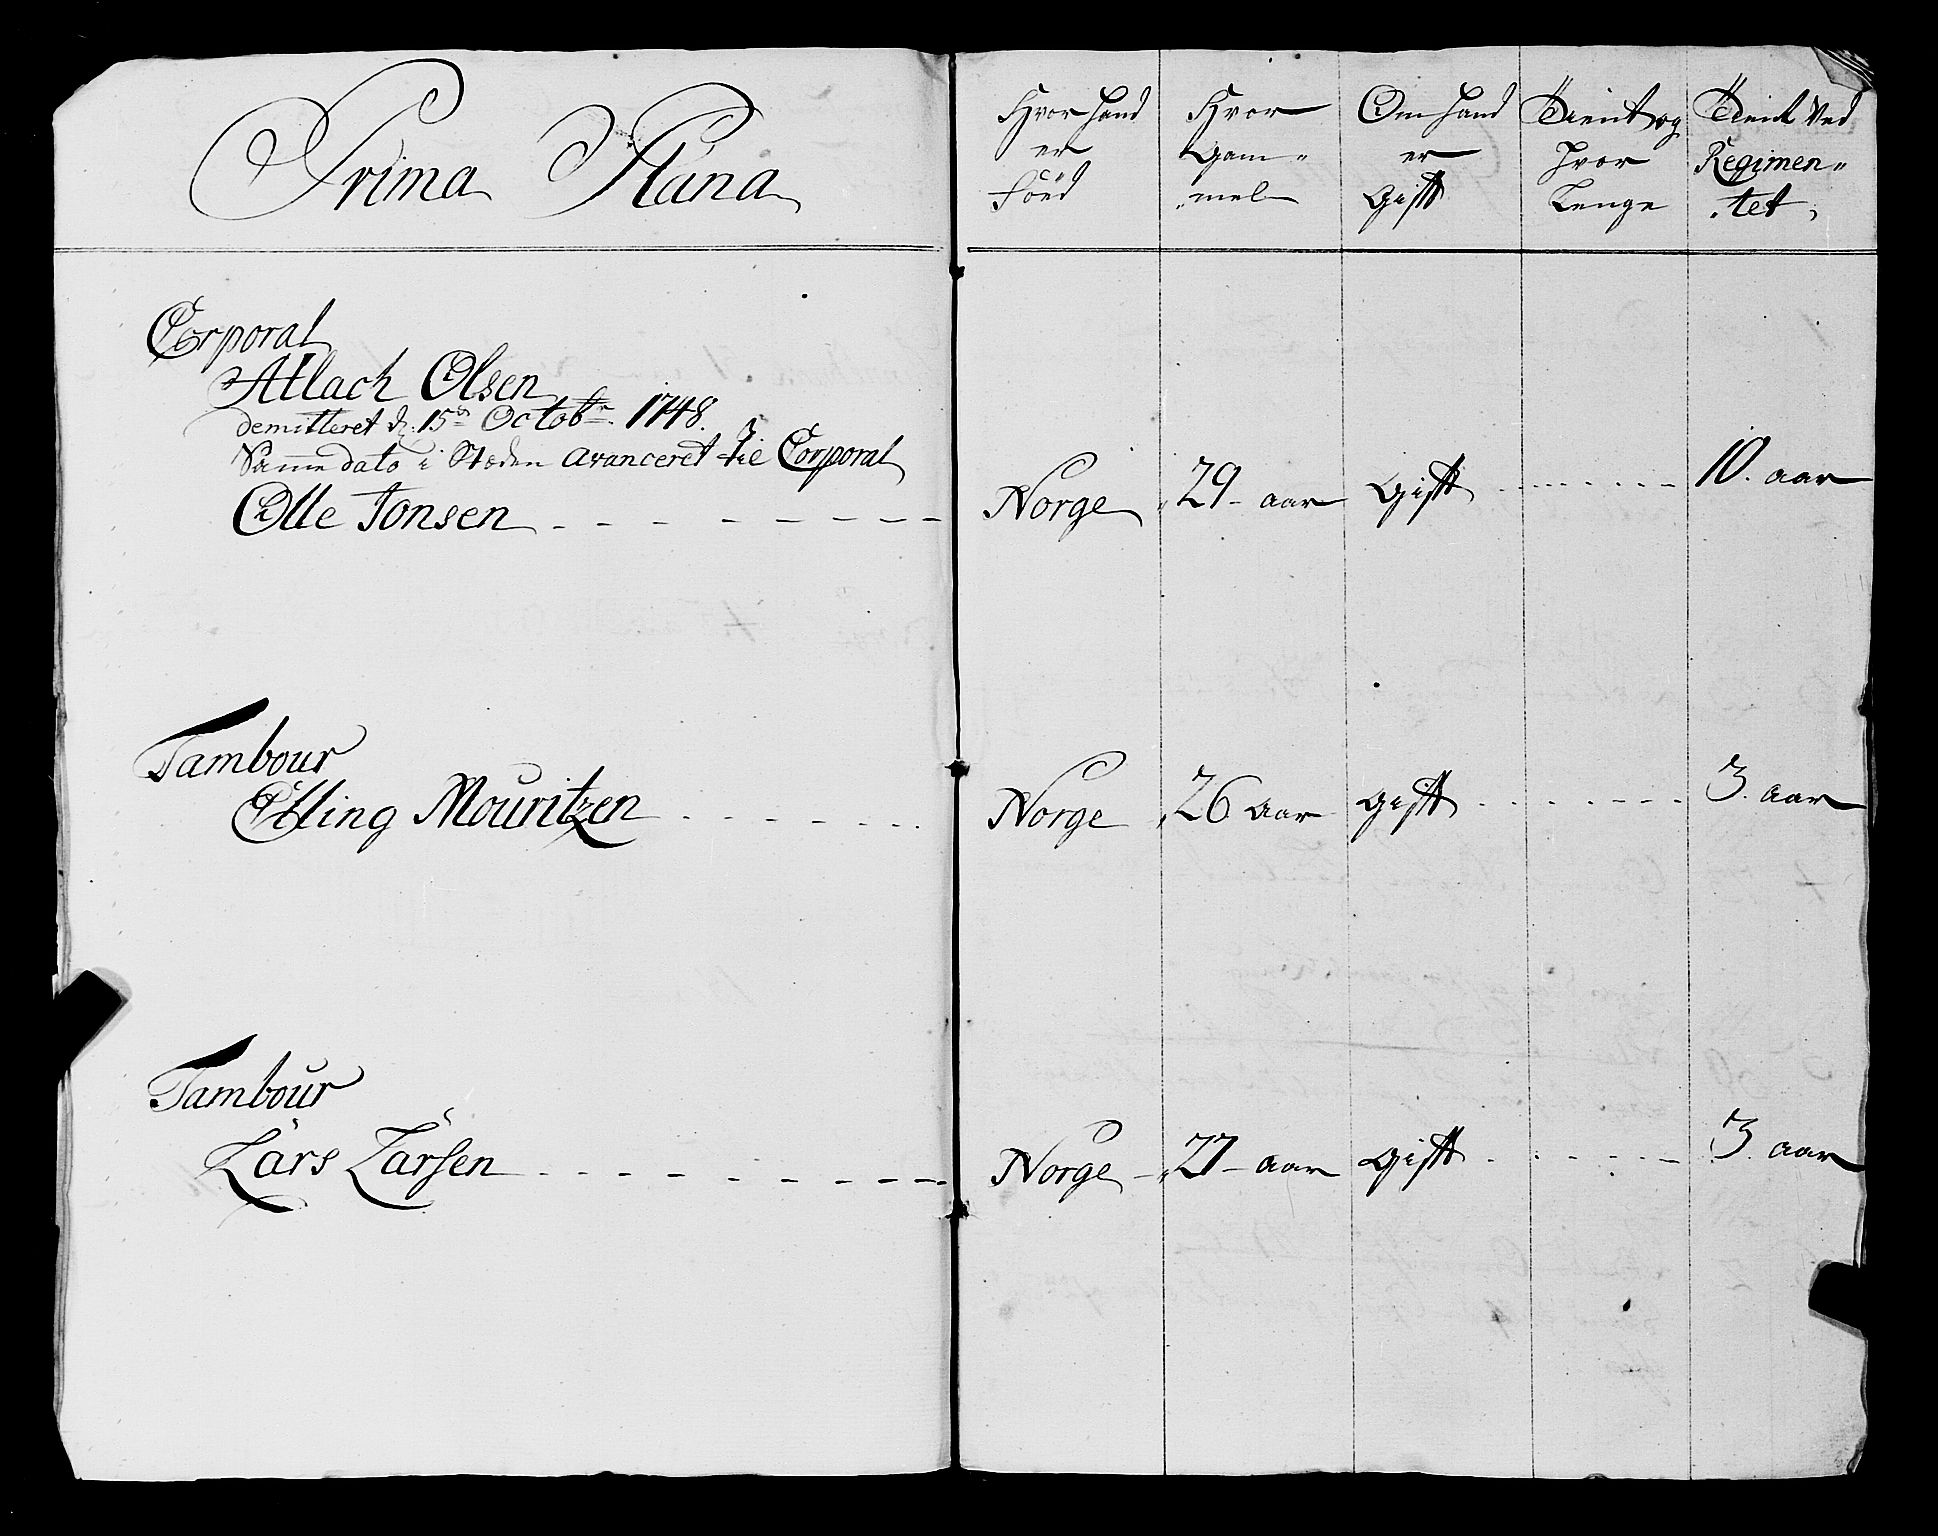 Prima Plana
Hvor hand er Föed
Hvor Gam= mel
Om hand er Gift
Tient og hvor Lenge
Tient ved Regimen= tet
Corporal
Atlach Olsen
demitteret d: 15de Octobr 1748.
Samme dato i Stæden avanceret til Corporal
Olle Jonsen Norge 29 aar Gift 10. aar
Tambour
Elling Mouritzen Norge 26 aar Gift 3. aar
Tambour
Lars Larsen Norge 27 aar Gift 3. aar